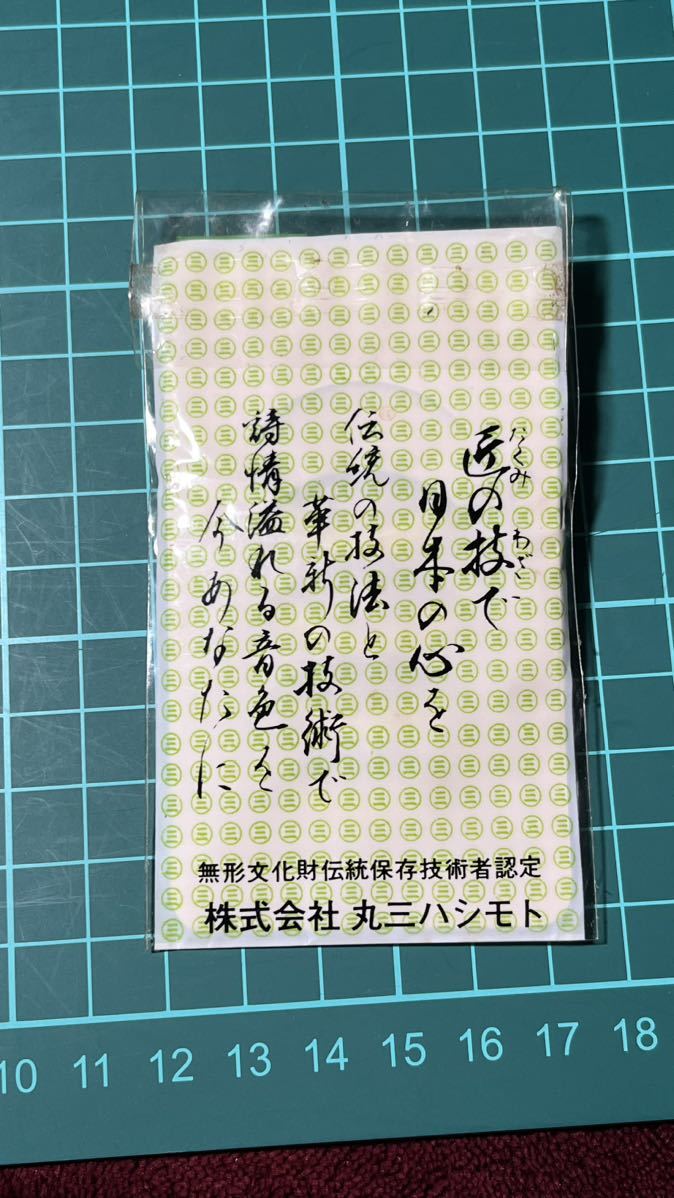 匠の技で
たくみ わざ
日本の心を
伝統の技法と
革新の技術で
詩情溢れる音色を
今あなたに
無形文化財伝統保存技術者認定
株式会社 丸三ハシモト
10 11 12 13 14 15 16 17 18